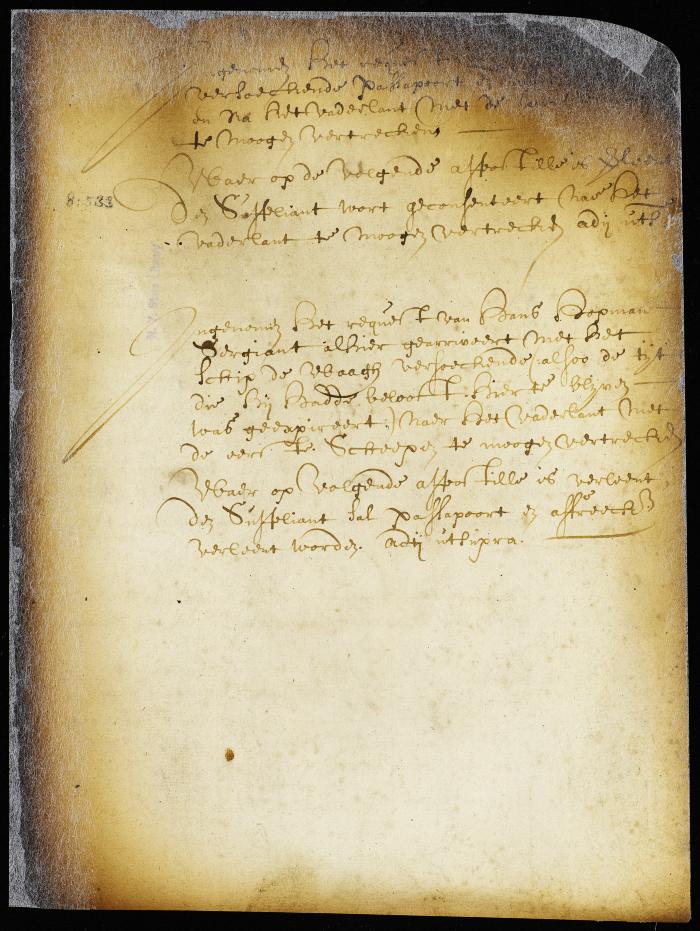 ngenomen het request
versoeckende passapoort
en na het vaderlant met de
te moogen vertrecken
Waer op de volgende appostille is
8:533
Den Suppliant wort geconsenteert nae het
vaderlant te moogen vertrecken adij ut
Ingenomen het request van Hans Hopman
Sergiant alhier gearriveert met het
schip de Waagh versoeckende (alsoo de tijt
die hij hadde belooft hier te blijven
was geexpireert:) naer het vaderlant met
de eerste Scheepen te moogen vertrecken
Waer op volgende appostille is verleent
den Suppliant sal passapoort en affreeck
verleent worden. adij utsupra.